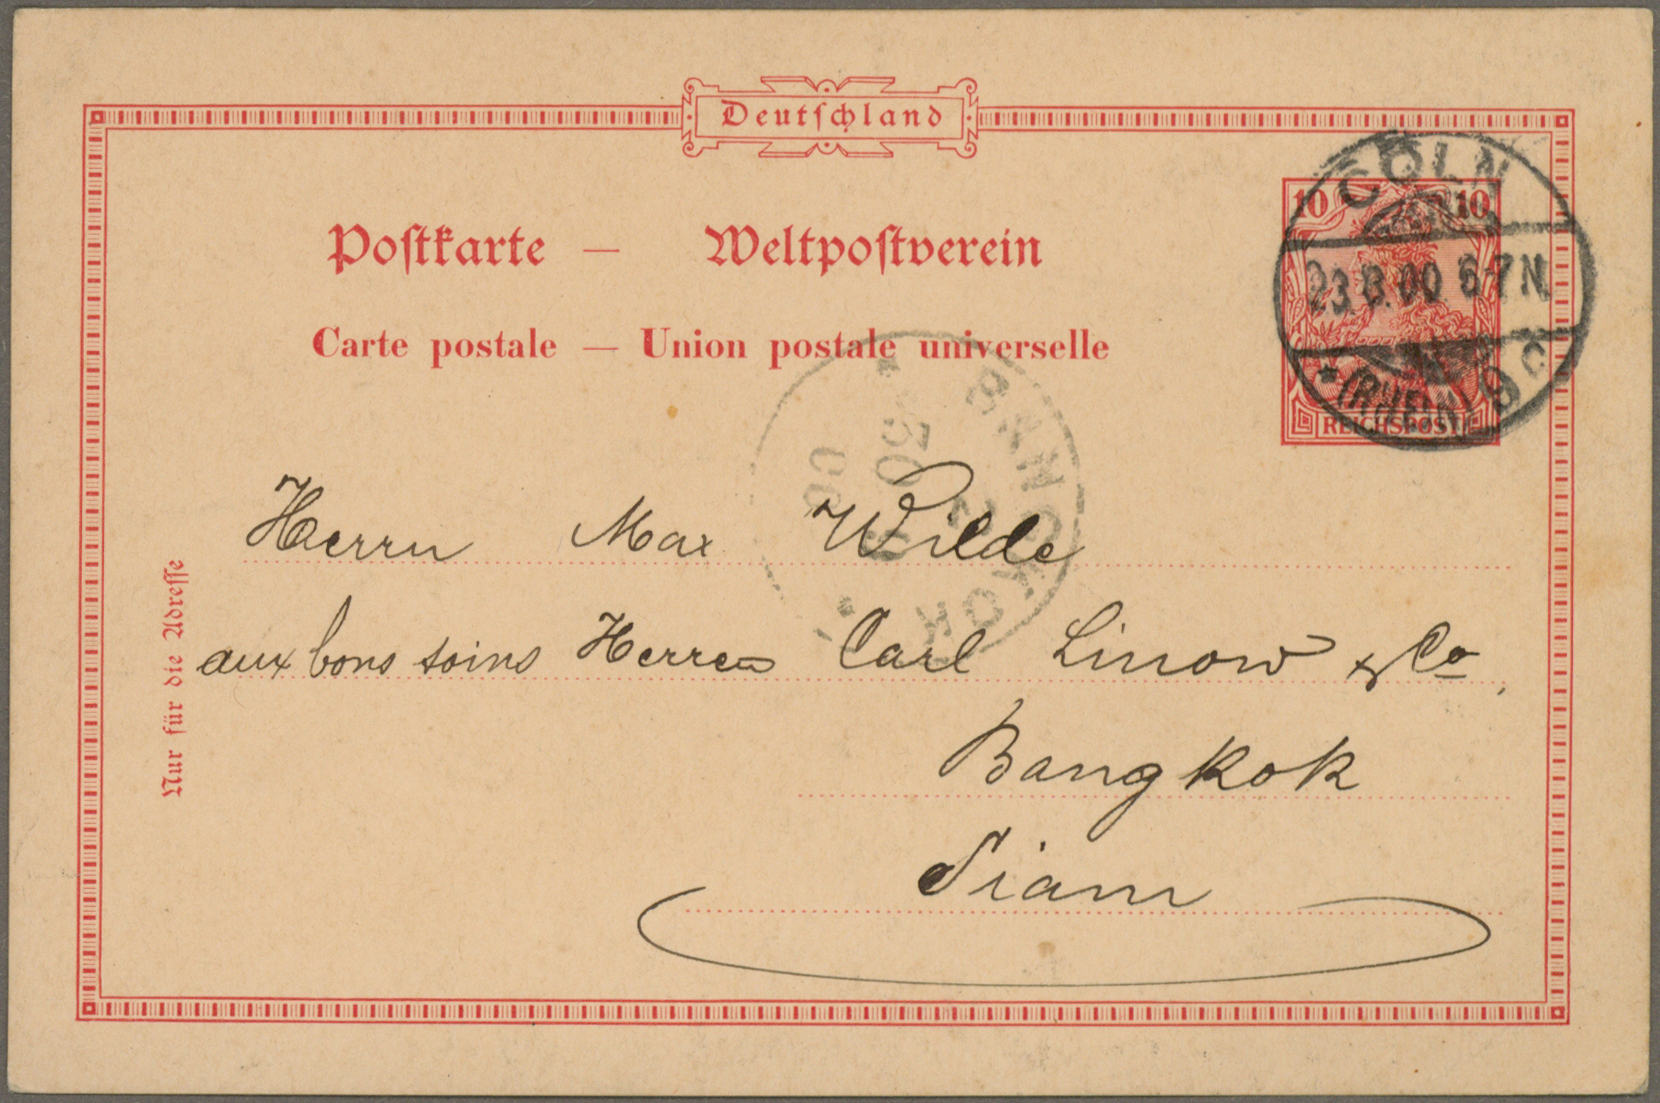 Deutschland
Postkarte — Weltpostverein
Carte postale — Union postale universelle
10 10
REICHSPOST
CÖLN
23. 00 6-7 N.
* (RHEIN) 9 c
BANGKOK
Herrn Max Wilde
aux bons soins Herren Carl Linow & Co,
Bangkok
Siam
Nur für die Adresse